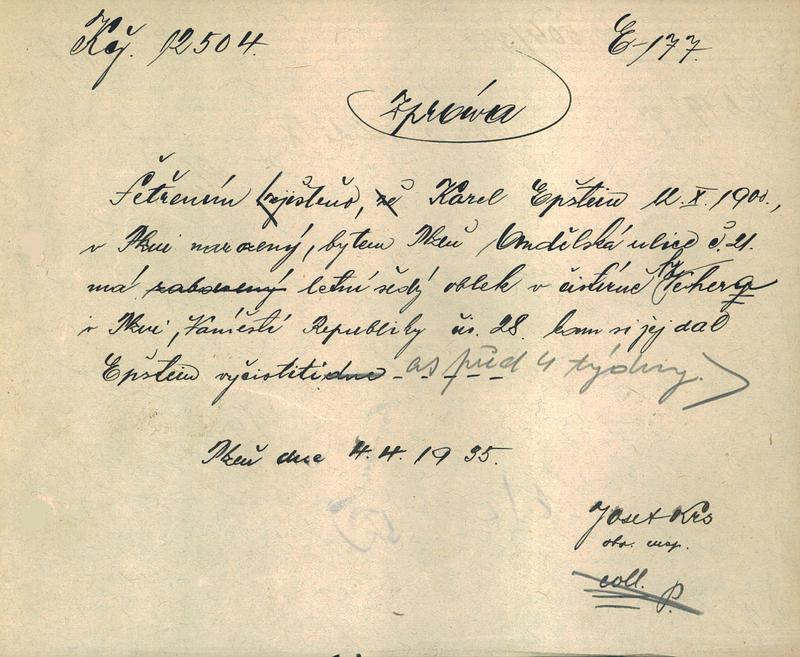 Kčj. 12504.
E-177.
Zpráva
Šetřením zjištěno, že Karel Epštein 12. X. 1900.,
v Plzni narozený, bytem Plzeň Andělská ulice č. 21.
má zabavený letní šedý oblek v čistírně
v Plzni, Náměstí Republiky čís. 28. kam si jej dal
Epštein vyčistiti dne - as před 4 týdny.
Plzeň dne 4.4. 1935.
Josef Krs
obv. insp.
coll.